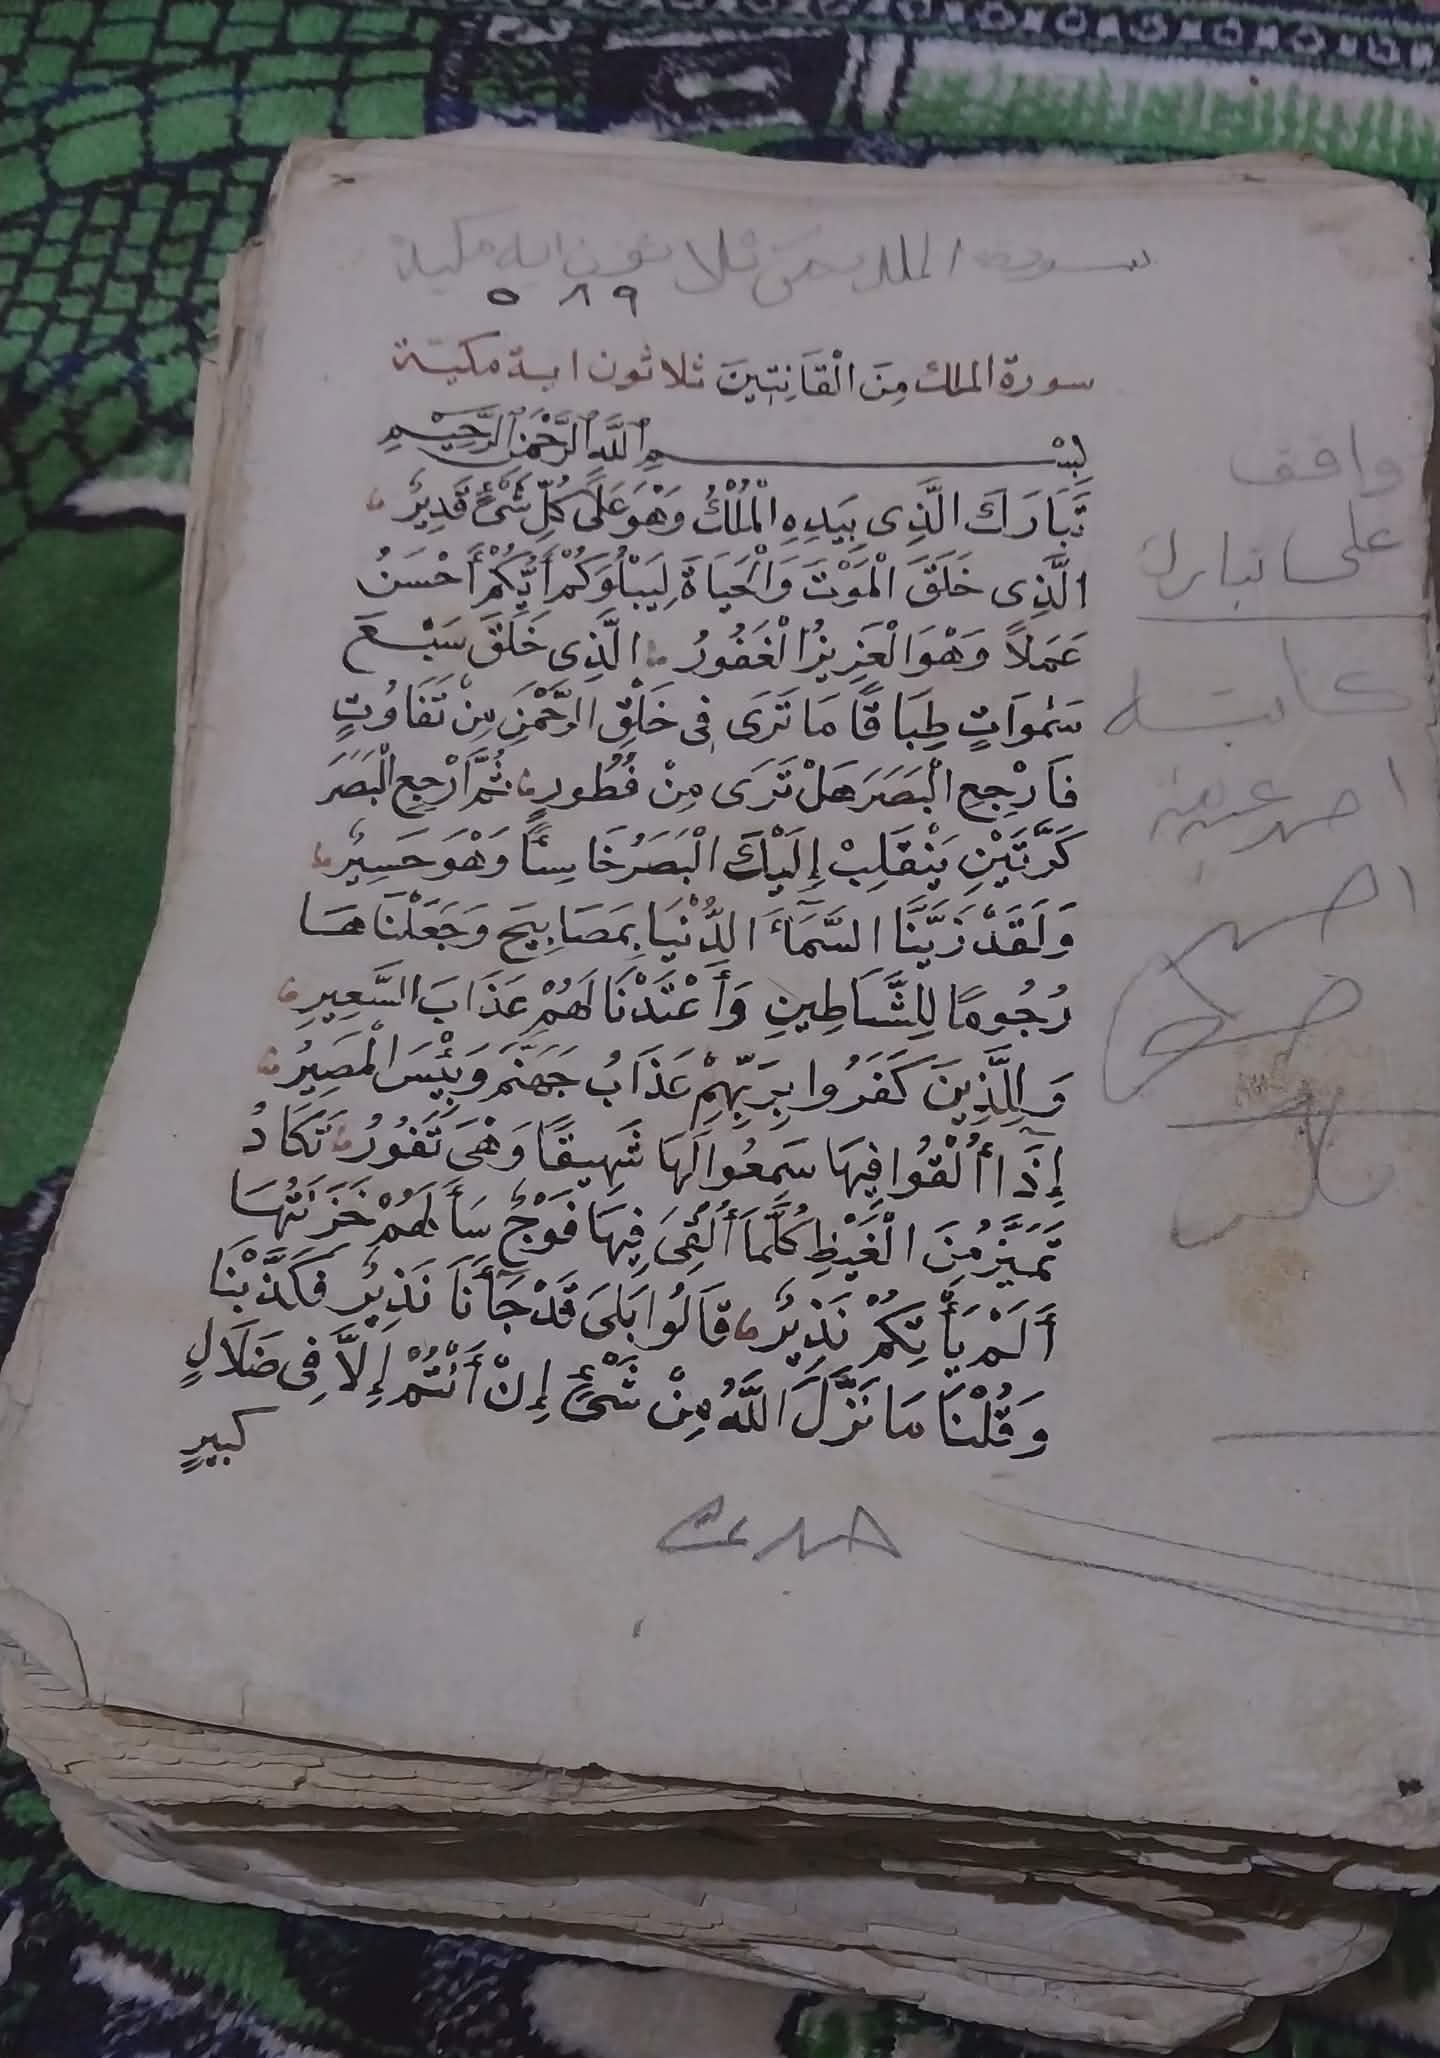 سورة الملك من ثلاثون ايه مكية
٥ ٨٩
سورة الملك مِنَ الْقَانِتِينَ ثلاثون اية مكية
بِسْمِ اللَّهِ الرَّحْمَنِ الرَّحِيمِ
تَبَارَكَ الَّذِى بِيَدِهِ الْمُلْكُ وَهْوَ عَلَى كُلِّ شَىْءٍ قَدِيرٌ
الَّذِى خَلَقَ الْمَوْتَ وَالْحَيَاةَ لِيَبْلُوَكُمْ أَيُّكُمْ أَحْسَنُ
عَمَلاً وَهْوَ الْعَزِيزُ الْغَفُورُ الَّذِى خَلَقَ سَبْعَ
سَمٰوَاتٍ طِبَاقًا مَا تَرَى فِى خَلْقِ الرَّحْمَنِ مِنْ تَفَاوُتٍ
فَارْجِعِ الْبَصَرَ هَلْ تَرَى مِنْ فُطُورٍ ثُمَّ ارْجِعِ الْبَصَرَ
كَرَّتَيْنِ يَنْقَلِبْ إِلَيْكَ الْبَصَرُ خَاسِئًا وَهْوَ حَسِيرٌ
وَلَقَدْ زَيَّنَّا السَّمَاءَ الدُّنْيَا بِمَصَابِيحَ وَجَعَلْنَاهَا
رُجُومًا لِلشَّيَاطِينِ وَأَعْتَدْنَا لَهُمْ عَذَابَ السَّعِيرِ
وَلِلَّذِينَ كَفَرُوا بِرَبِّهِمْ عَذَابُ جَهَنَّمَ وَبِئْسَ الْمَصِيرُ
إِذَا أُلْقُوا فِيهَا سَمِعُوا لَهَا شَهِيقًا وَهْىَ تَفُورُ تَكَادُ
تَمَيَّزُ مِنَ الْغَيْظِ كُلَّمَا أُلْقِىَ فِيهَا فَوْجٌ سَأَلَهُمْ خَزَنَتُهَا
أَلَمْ يَأْتِكُمْ نَذِيرٌ قَالُوا بَلَى قَدْ جَآءَنَا نَذِيرٌ فَكَذَّبْنَا
وَقُلْنَا مَا نَزَّلَ اللَّهُ مِنْ شَىْءٍ إِنْ أَنْتُمْ إِلاَّ فِى ضَلَالٍ
كَبِيرٍ
واقف
على تبارك
كاتبه
احمد
احمد